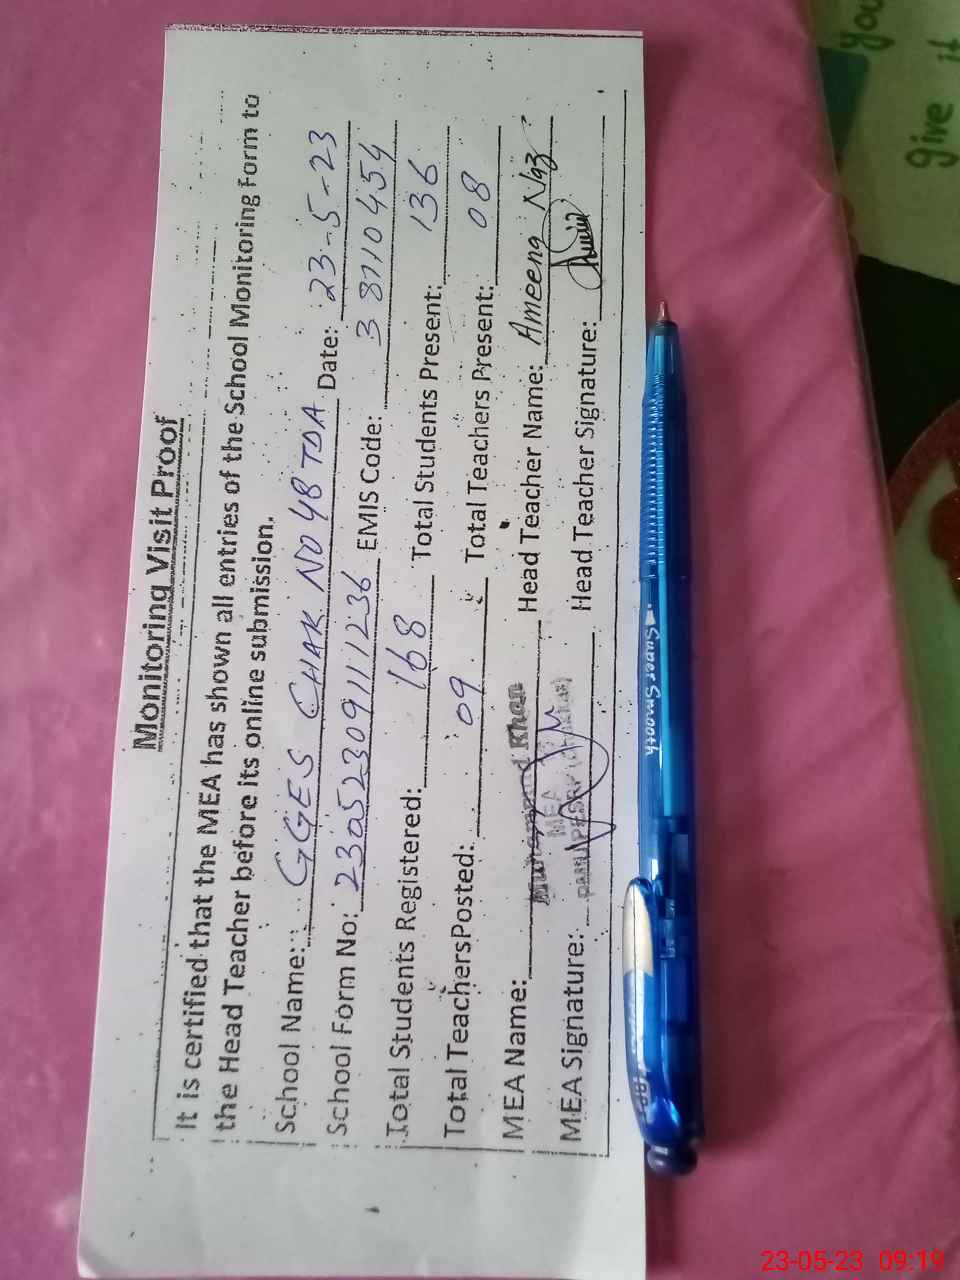 Monitoring Visit Proof
It is certified that the MEA has shown all entries of the School Monitoring Form to
the Head Teacher before its online submission.
School Name: GGES CHAK NO 48 TDA Date: 23-5-23
School Form No: 23052309111236 EMIS Code: 38710454
Total Students Registered: 168 Total Students Present: 136
Total TeachersPosted: 09 Total Teachers Present: 08
MEA Name: Muhammad Khan Head Teacher Name: Ameena Naz
MEA
MEA Signature: Head Teacher Signature:
Super Smooth
you
give it
23-05-23 09:19